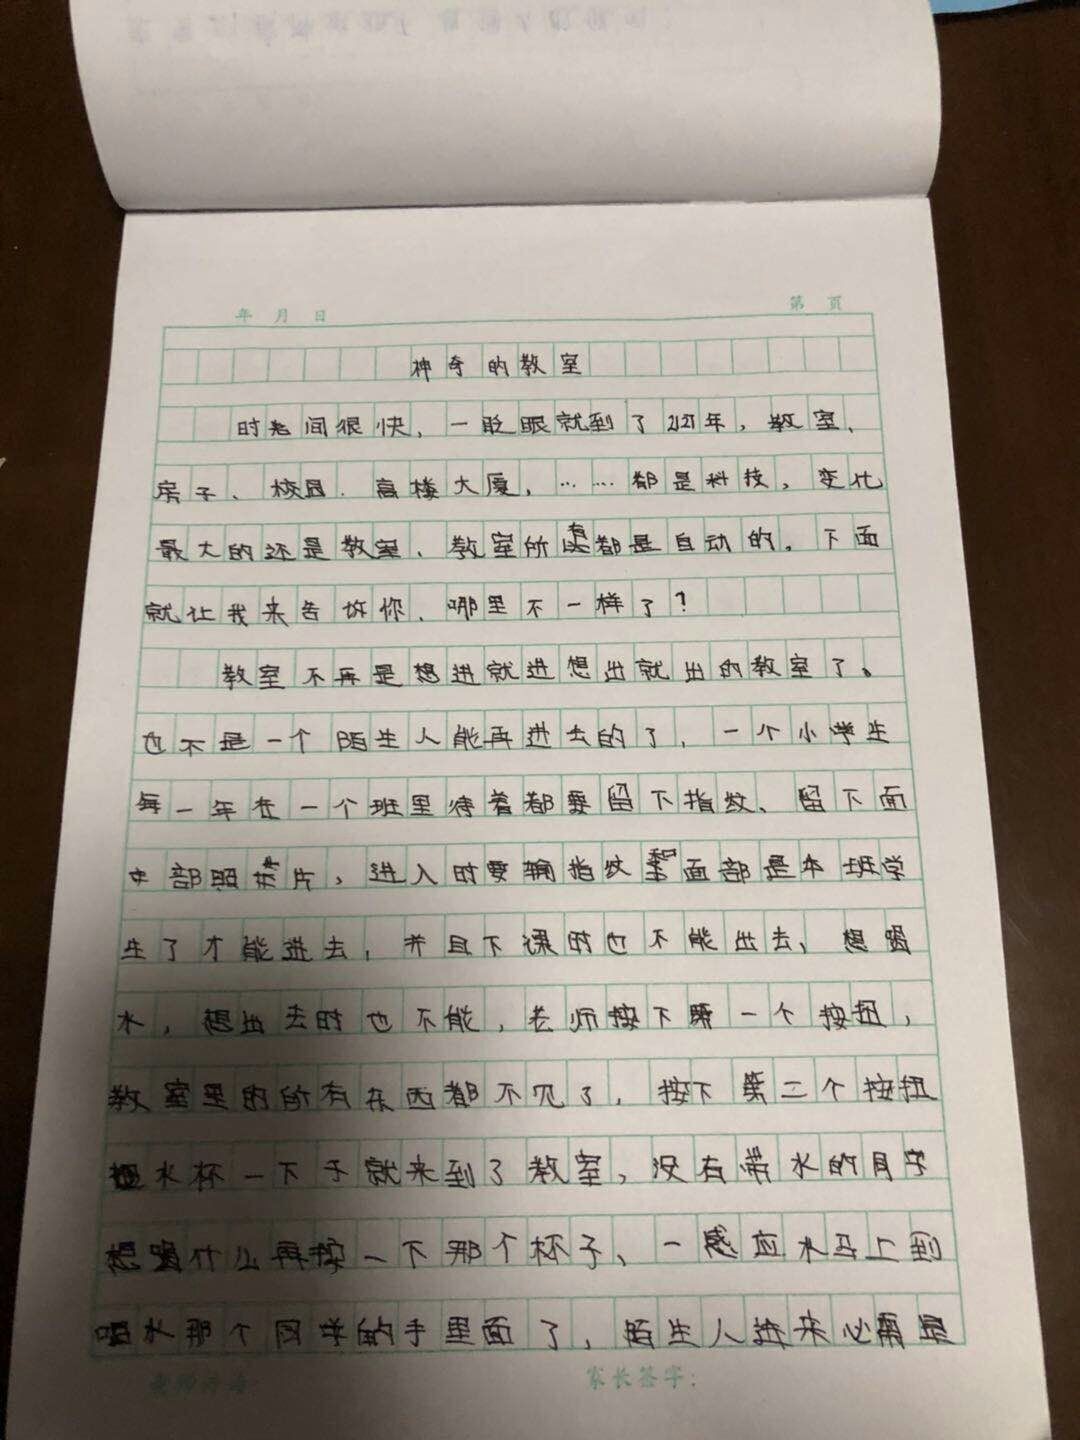 年 月 日
第 页
神奇的教室
时间很快、一眨眼就到了2121年，教室、
房子、校园、高楼大厦，……都是科技，变化
最大的还是教室、教室所有都是自动的。下面
就让我来告诉你、哪里不一样了？
教室不再是想进就进想出就出的教室了。
也不是一个陌生人能再进去的了、一个小学生
每一年在一个班里待着都要留下指纹、留下面
部照片，进入时要输指纹和面部是本班学
生了才能进去，并且下课时也不能出去、想喝
水，想出去时也不能，老师按下第一个按扭，
教室里的所有东西都不见了，按下第二个按扭
水杯一下子就来到了教室，没有带水的同学
想喝什么再按一下那个杯子、一感应水马上到
喝水那个同学的手里面了，陌生人进来必需是
家长签字：